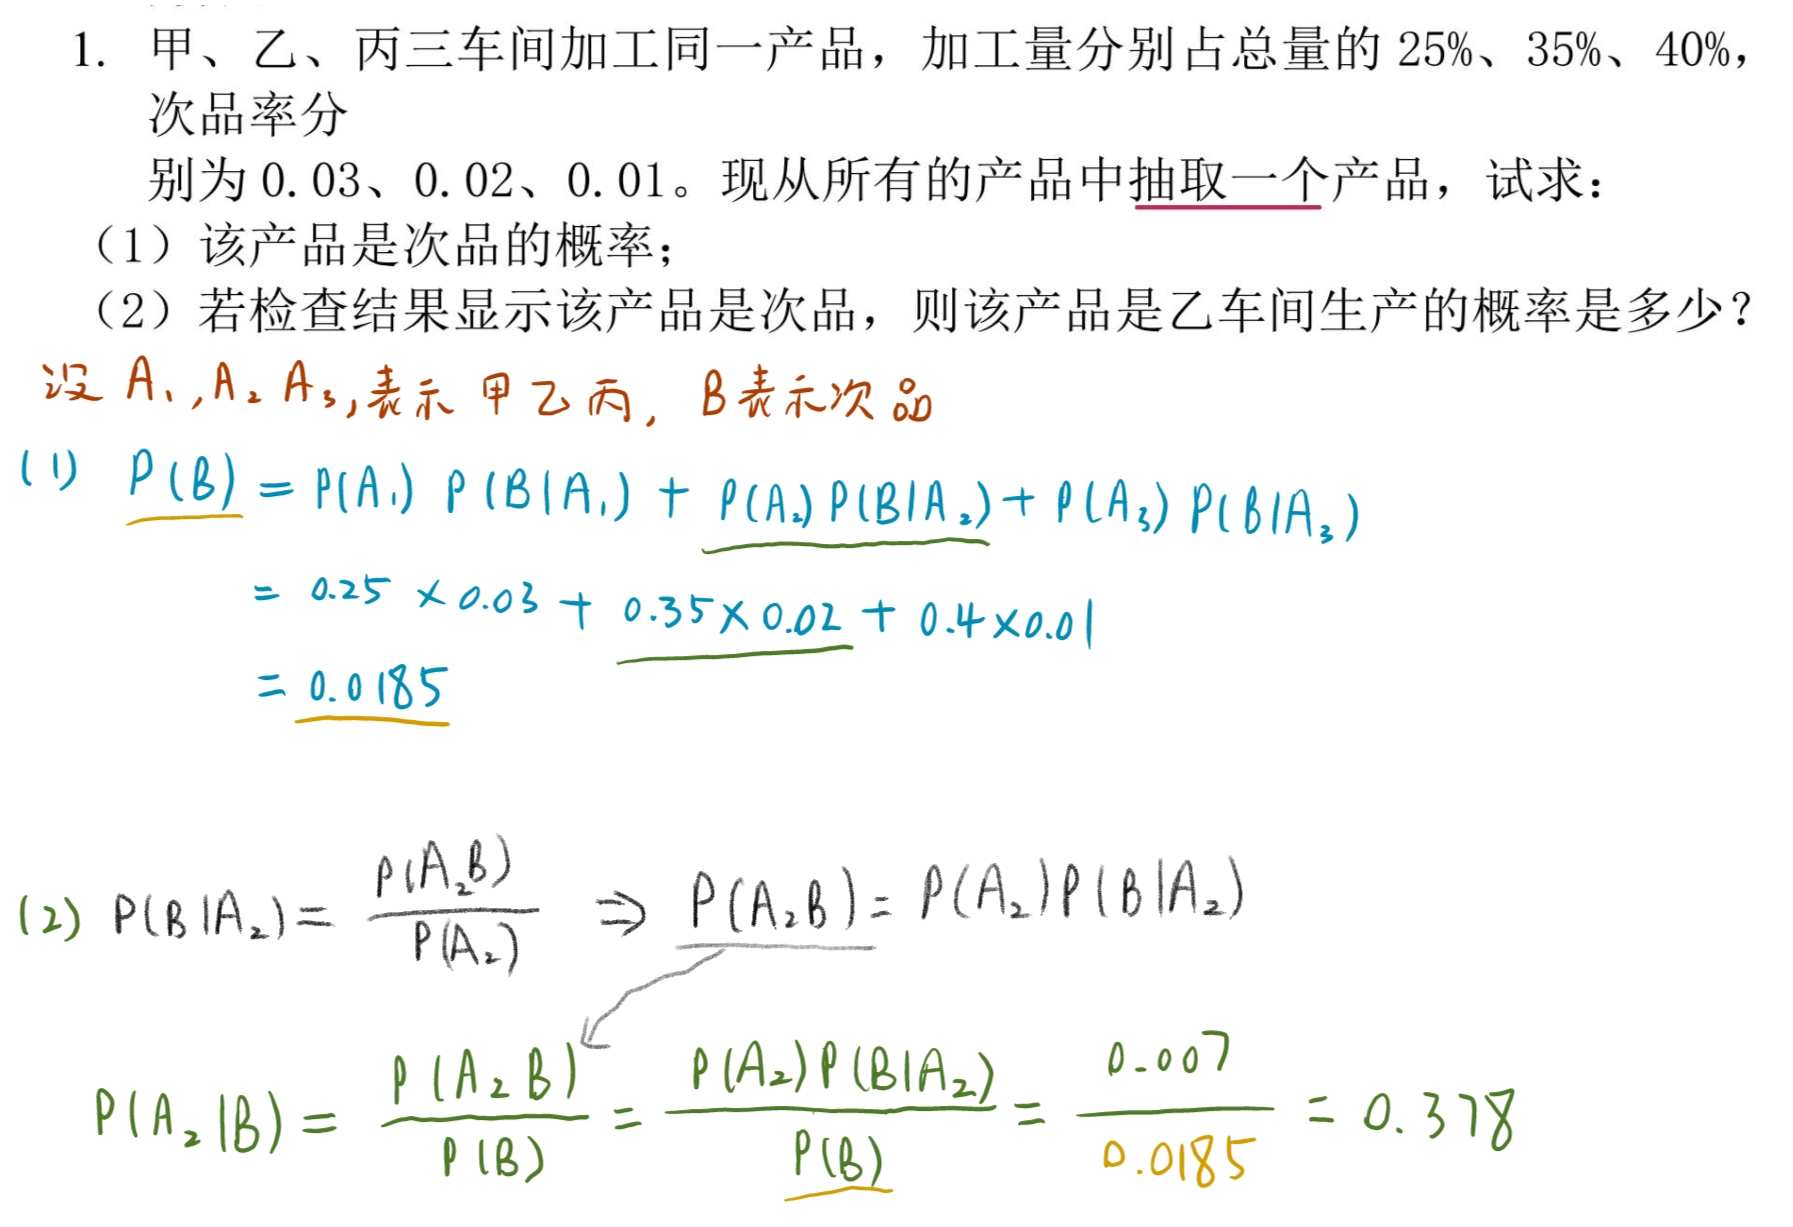 1. 甲、乙、丙三车间加工同一产品，加工量分别占总量的 25%、35%、40%，
次品率分
别为 0.03、0.02、0.01。现从所有的产品中抽取一个产品，试求：
（1）该产品是次品的概率；
（2）若检查结果显示该产品是次品，则该产品是乙车间生产的概率是多少？
设 A₁,A₂ A₃,表示 甲乙丙, B表示次品
(1) P(B) = P(A₁) P(B|A₁) + P(A₂)P(B|A₂) + P(A₃)P(B|A₃)
= 0.25 × 0.03 + 0.35×0.02 + 0.4×0.01
= 0.0185
(2) P(B|A₂) = P(A₂B) / P(A₂) ⇒ P(A₂B) = P(A₂)P(B|A₂)
P(A₂|B) = P(A₂B) / P(B) = P(A₂)P(B|A₂) / P(B) = 0.007 / 0.0185 = 0.378